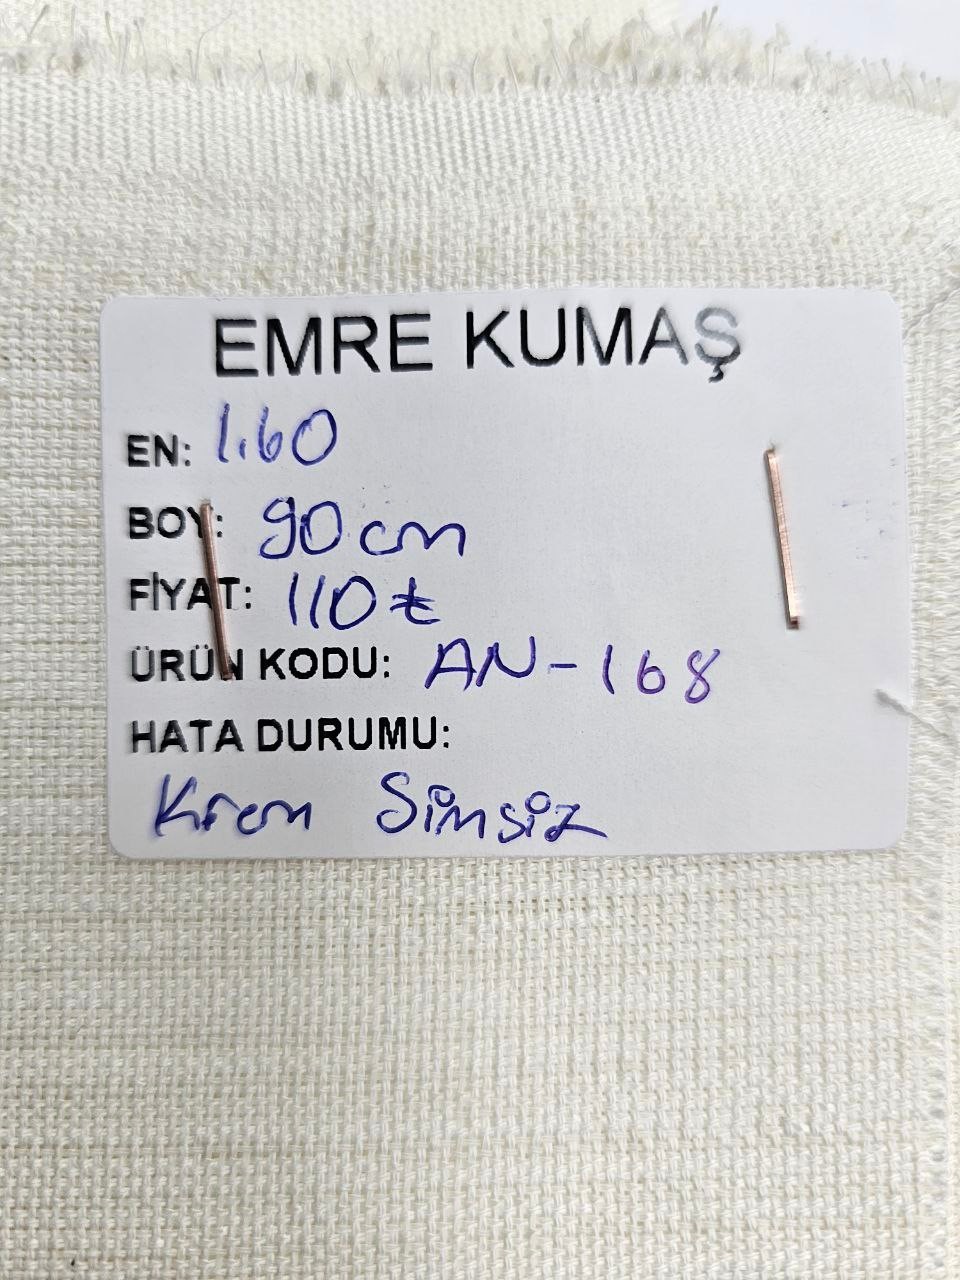 EMRE KUMAŞ
EN: 1.60
BOY: 90 cm
FİYAT: 110 ₺
ÜRÜN KODU: AN-168
HATA DURUMU:
Krem Simsiz